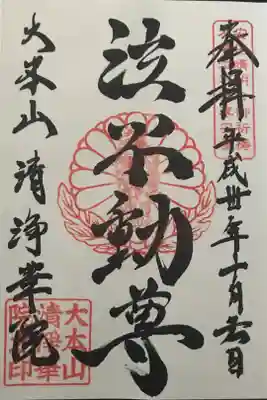 奉拝 平成卅年 月吉日
泣不動尊
大本山 清浄華院
大本山
清浄華
院之印